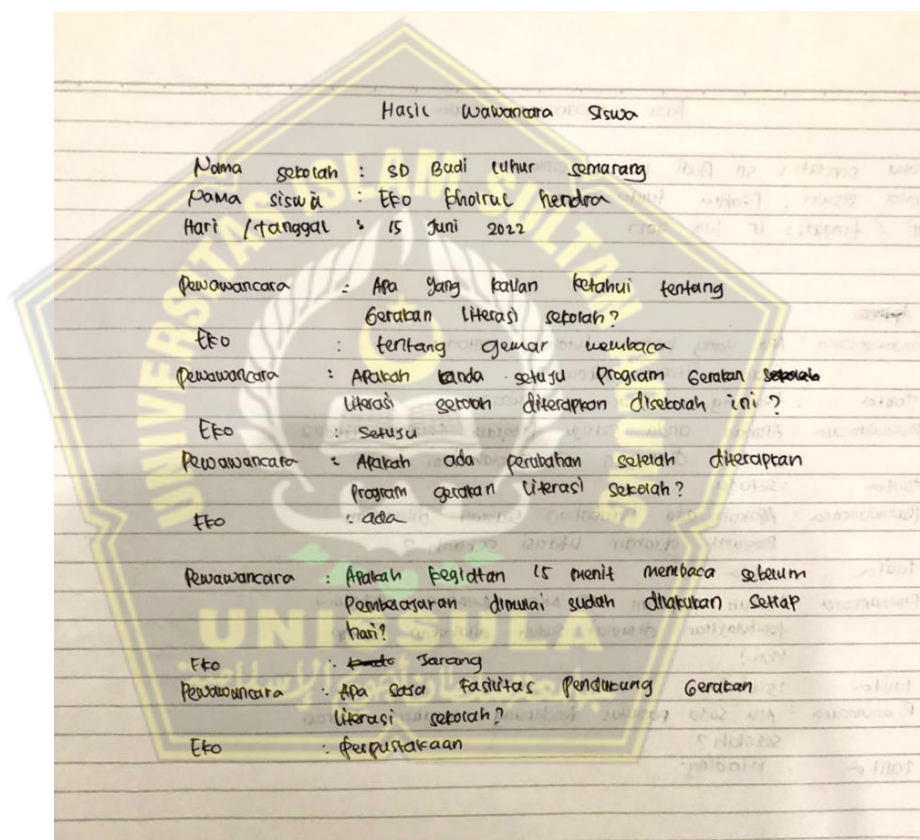 Hasil Wawancara Siswa
Nama sekolah : SD Budi Luhur Semarang
Nama siswa : Eko Khoirul Hendra
Hari / tanggal : 15 Juni 2022
Pewawancara : Apa yang kalian ketahui tentang
Gerakan Literasi sekolah?
Eko : tentang gemar membaca
Pewawancara : Apakah anda setuju program Gerakan
Literasi sekolah diterapkan disekolah ini ?
Eko : Setuju
Pewawancara : Apakah ada perubahan setelah diterapkan
Program gerakan Literasi sekolah?
Eko : ada
Pewawancara : Apakah kegiatan 15 menit membaca sebelum
Pembelajaran dimulai sudah dilakukan setiap
hari?
Eko : Jarang
Pewawancara : Apa saja Fasilitas Pendukung Gerakan
Literasi sekolah?
Eko : Perpustakaan
UNIVERSITAS ISLAM SULTAN AGUNG
UNISSULA